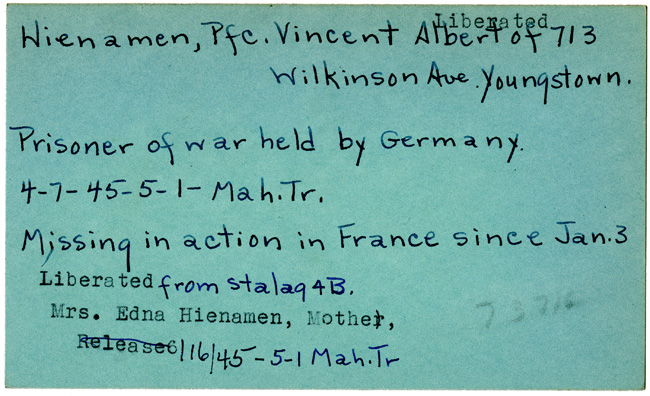 Liberated
Hienamen, Pfc. Vincent Albert of 713
Wilkinson Ave. Youngstown.
Prisoner of war held by Germany.
4-7-45-5-1- Mah.Tr.
Missing in action in France since Jan.3
Liberated from Stalag 4B.
Mrs. Edna Hienamen, Mother,
Release 6/16/45-5-1 Mah.Tr